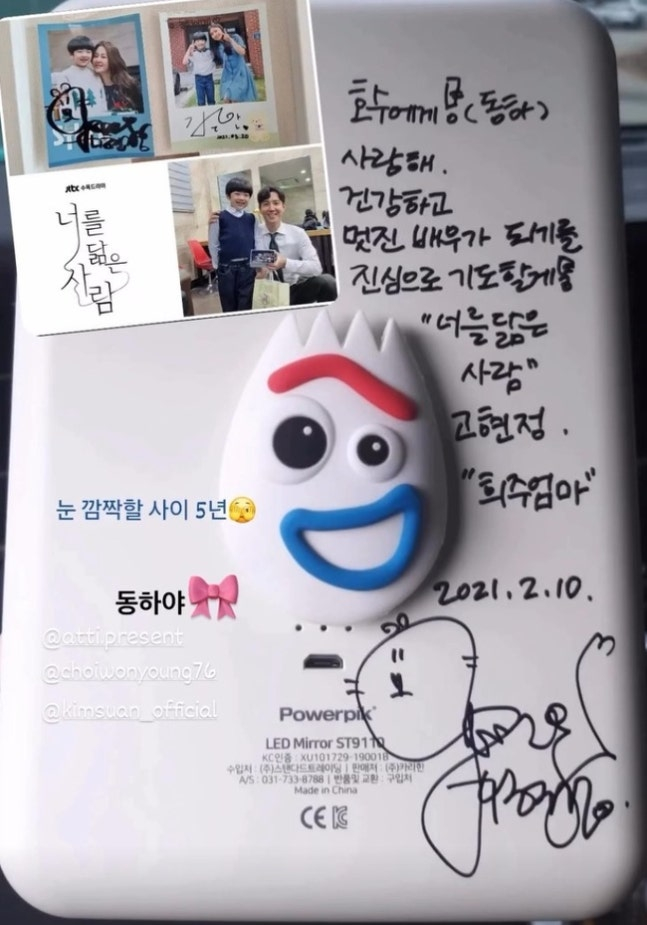 jtbc 수목드라마
너를
닮은
사람
2021.03.20
호수에게 (동하)
사랑해.
건강하고
멋진 배우가 되기를
진심으로 기도할게
"너를 닮은
사람"
고현정.
"희주엄마"
2021.2.10.
눈 깜짝할 사이 5년🫣
동하야🎀
@atti.present
@choiwonyoung76
@kimsuan_official
Powerpik
LED Mirror ST9110
KC인증 : XU101729-19001B
수입처 : (주)스탠다드트레이딩 | 판매처 : (주)카리힌
A/S : 031-733-8788 | 반품및 교환 : 구입처
Made in China
CE